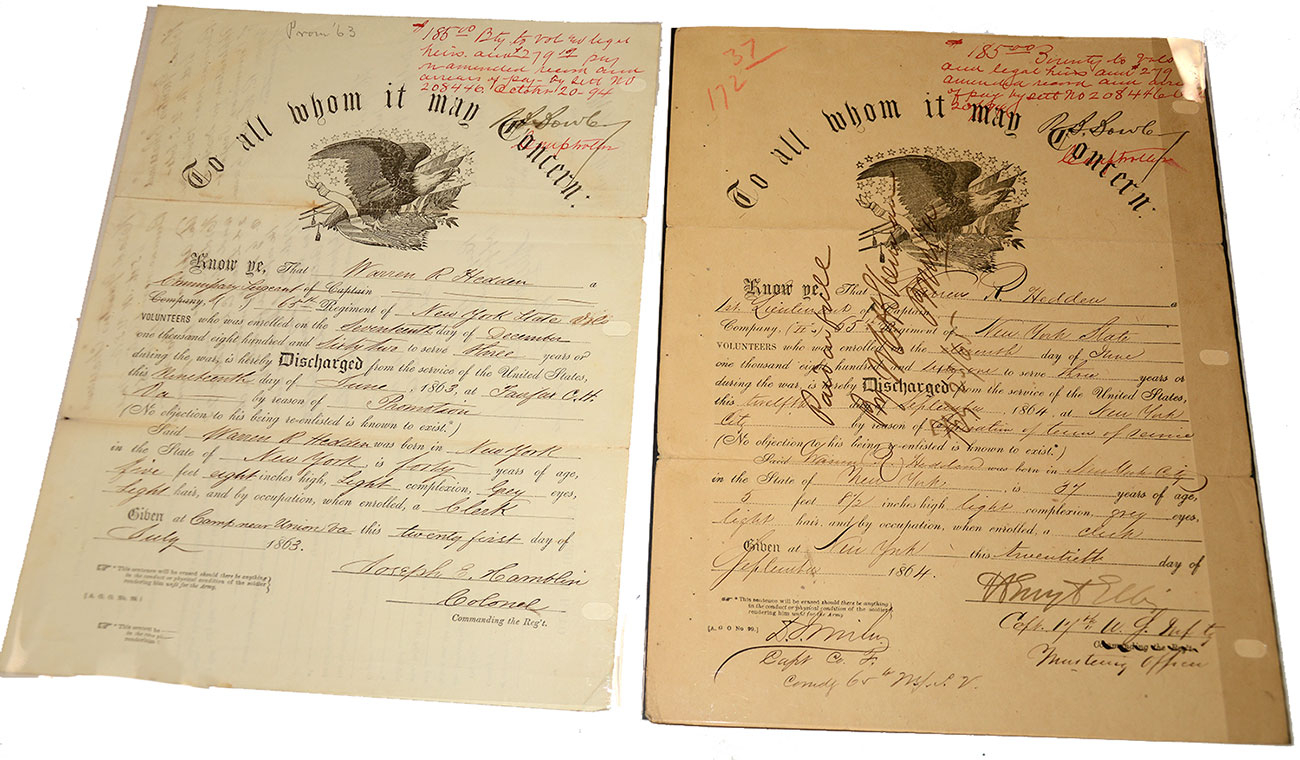 Prom '63
$185.00 Bty to Vol and legal
heirs. and 279 pay
amended record and
arrears of pay - by Sett No
208446 October 20-94
Comptroller
To all whom it may Concern:
Know ye, That Warren R Hedden a
Commissary Sergeant of Captain
Company, 65th Regiment of New York State Vols
VOLUNTEERS who was enrolled on the Seventeenth day of December
one thousand eight hundred and Sixty two to serve Three years or
during the war, is hereby Discharged from the service of the United States,
this Nineteenth day of June, 1863, at Fairfax C.H.
Va by reason of Promotion
(No objection to his being re-enlisted is known to exist.*)
Said Warren R Hedden was born in New York
in the State of New York, is forty years of age,
five feet eight inches high, Light complexion, Grey eyes,
Light hair, and by occupation, when enrolled, a Clerk
Given at Camp near Union Va this twenty first day of
July 1863.
* This sentence will be erased should there be anything
in the conduct or physical condition of the soldier
rendering him unfit for the Army.
[A. G. O. No. 99.]
* This sentence
in the
rendering him
Joseph E. Hamblin
Colonel
Commanding the Reg't.
37
172
$185.00 Bounty to Vols
and legal heirs and 279
amended record and
of pay by Sett No 208446
Comptroller
To all whom it may Concern:
Paid in full
Know ye, That Warren R Hedden a
1st Lieutenant of Captain
Company, 65 Regiment of New York State
VOLUNTEERS who was enrolled on the day of June
one thousand eight hundred and sixty one to serve three years or
during the war, is hereby Discharged from the service of the United States,
this twelfth day of September 1864, at New York
City by reason of expiration of term of service
(No objection to his being re-enlisted is known to exist.*)
Said Warren R. Hedden was born in New York City
in the State of New York, is 37 years of age,
5 feet 8½ inches high light complexion, grey eyes,
light hair, and by occupation, when enrolled, a clerk
Given at New York this twentieth day of
September 1864.
* This sentence will be erased should there be anything
in the conduct or physical condition of the soldier
rendering him unfit for the Army
[A. G. O No. 99.]
Capt Co. F.
Comdg 65th N.Y.S.V.
Capt. 17th U.S. Infty
Commanding the Reg't.
Mustering Officer